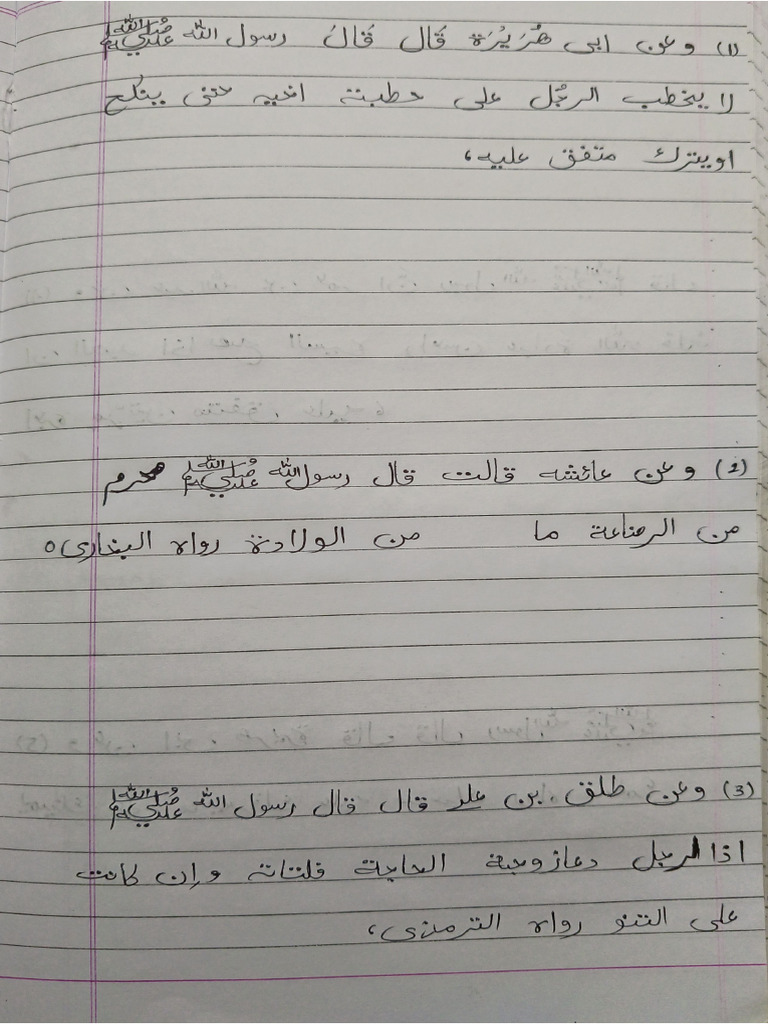 (1) وعن ابی هُرَيْرَة قَال قَالَ رسول الله ﷺ
لا يخطب الرجُل علی خطبته اخيه حتی ينكح
اويترك متفق عليه،
(2) وعن عائشه قالت قال رسول الله ﷺ محرم
من الرضاعة ما من الولادة رواه البخاری٥
(3) وعن طلق بن علی قال قال رسول الله ﷺ
اذا الرجل دعازوجته الحاجة فلتاته وإن كانت
علی التنو رواه الترمذی،